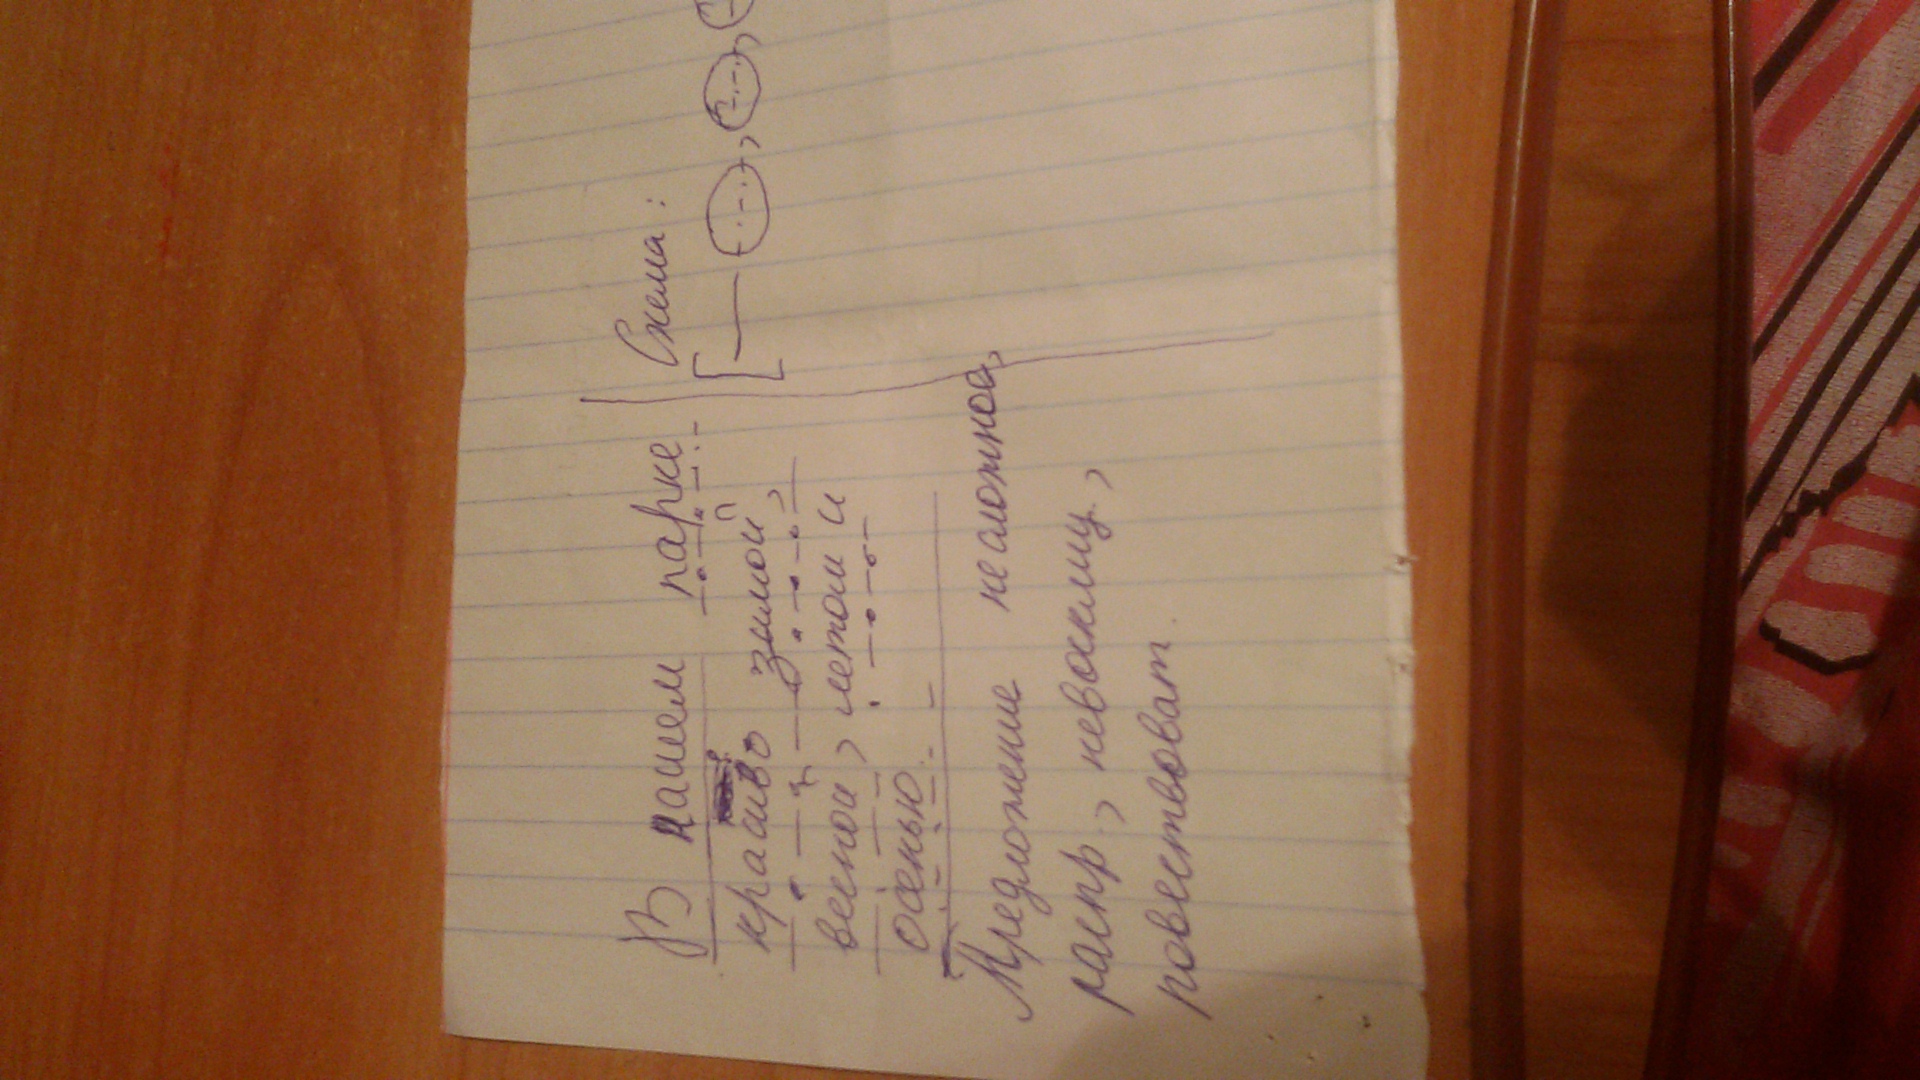 В нашем парке
красиво зимой,
весной, летом и
осенью.
Предложение не сложное,
распр., невосклиц.,
повествоват.
Схема: